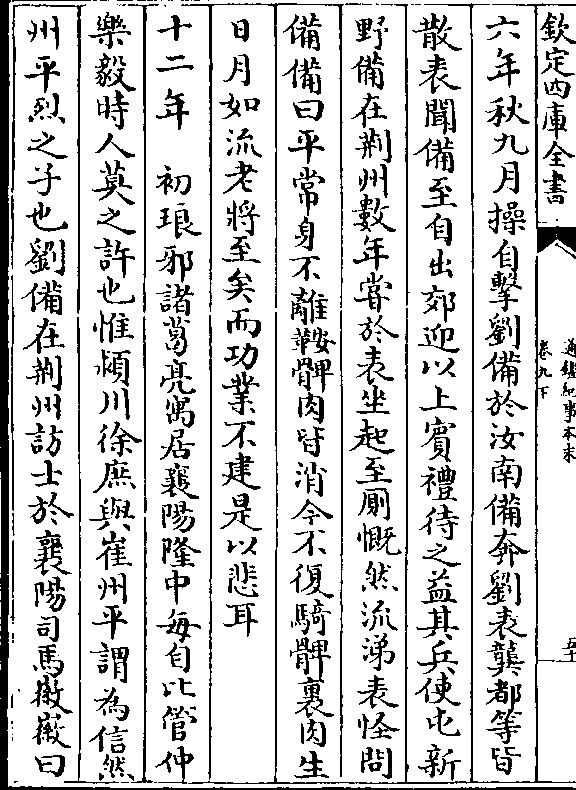 欽定四庫全書
通鑑紀事本末
卷九下
六年秋九月操自擊劉備於汝南備奔劉表龔都等皆
散表聞備至自出郊迎以上賓禮待之益其兵使屯新
野備在荆州數年嘗於表坐起至厠慨然流涕表怪問
備備曰平常身不離鞍髀肉皆消今不復騎髀裏肉生
日月如流老將至矣而功業不建是以悲耳
十二年　初琅邪諸葛亮寓居襄陽隆中每自比管仲
樂毅時人莫之許也惟潁川徐庶與崔州平謂為信然
州平烈之子也劉備在荆州訪士於襄陽司馬徽徽曰